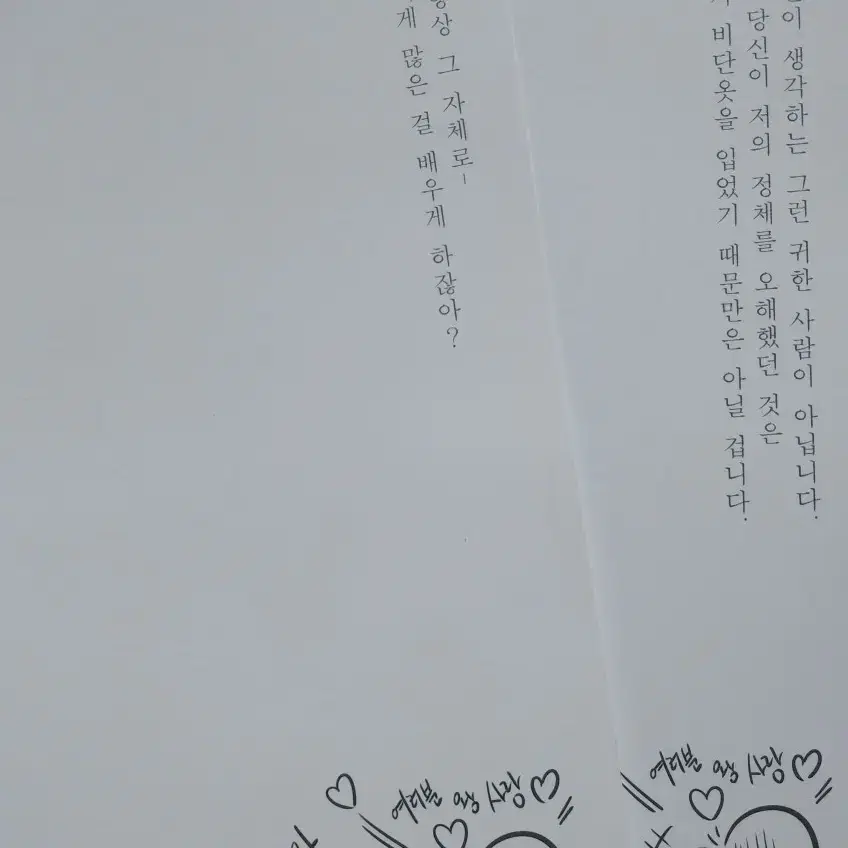 이 생각하는 그런 귀한 사람이 아닙니다.
당신이 저의 정체를 오해했던 것은
비단옷을 입었기 때문만은 아닐 겁니다.
상 그 자체로–
게 많은 걸 배우게 하잖아?
여러분 왕 사랑♡
여러분 왕 사랑♡